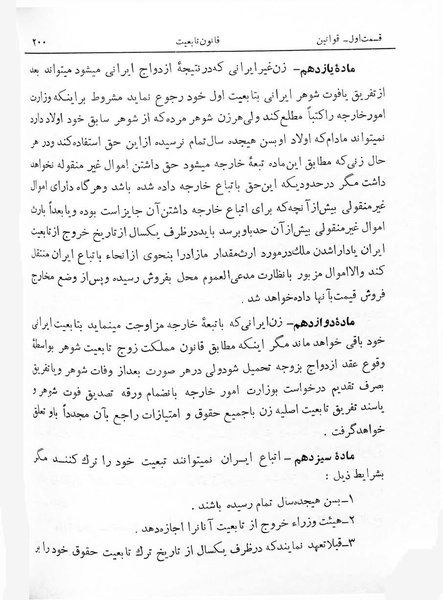 قسمت اول ـ قوانین قانون تابعیت ۲۰۰
مادهٔ یازدهم ـ زن غیر ایرانی که در نتیجهٔ ازدواج ایرانی میشود میتواند بعد
از تفریق یا فوت شوهر ایرانی بتابعیت اول خود رجوع نماید مشروط براینکه وزارت
امور خارجه را کتباً مطلع کند ولی هر زن شوهر مرده که از شوهر سابق خود اولاد دارد
نمیتواند مادام که اولاد او بسن هیجده سال تمام نرسیده از این حق استفاده کند و در هر
حال زنی که مطابق این ماده تبعهٔ خارجه میشود حق داشتن اموال غیر منقوله نخواهد
داشت مگر در حدودیکه این حق با تباع خارجه داده شده باشد و هر گاه دارای اموال
غیر منقولی بیش از آنچه که برای اتباع خارجه داشتن آن جایز است بوده و یا بعداً بارث
اموال غیر منقولی بیش از آن حد باو برسد باید در ظرف یکسال از تاریخ خروج از تابعیت
ایران یا دارا شدن ملک در مورد ارث مقدار مازاد را بنحوی از انحاء با تباع ایران منتقل
کند والا اموال مزبور با نظارت مدعی العموم محل بفروش رسیده و پس از وضع مخارج
فروش قیمت بآنها داده خواهد شد .
مادهٔ دوازدهم ـ زن ایرانی که با تبعهٔ خارجه مزاوجت مینماید بتابعیت ایرانی
خود باقی خواهد ماند مگر اینکه مطابق قانون مملکت زوج تابعیت شوهر بواسطهٔ
وقوع عقد ازدواج بزوجه تحمیل شود ولی در هر صورت بعد از وفات شوهر و یا تفریق
بصرف تقدیم درخواست بوزارت امور خارجه بانضمام ورقه تصدیق فوت شوهر و
یا سند تفریق تابعیت اصلیه زن با جمیع حقوق و امتیازات راجع بآن مجدداً باو تعلق
خواهد گرفت .
مادهٔ سیزدهم ـ اتباع ایران نمیتوانند تبعیت خود را ترك كننـد مگر
بشرایط ذیل :
۱ـ بسن هیجده سال تمام رسیده باشند .
۲ـ هیئت وزراء خروج از تابعیت آنانرا اجازه دهد .
۳ـ قبلا تعهد نمایند که در ظرف یکسال از تاریخ ترك تابعیت حقوق خود را بر